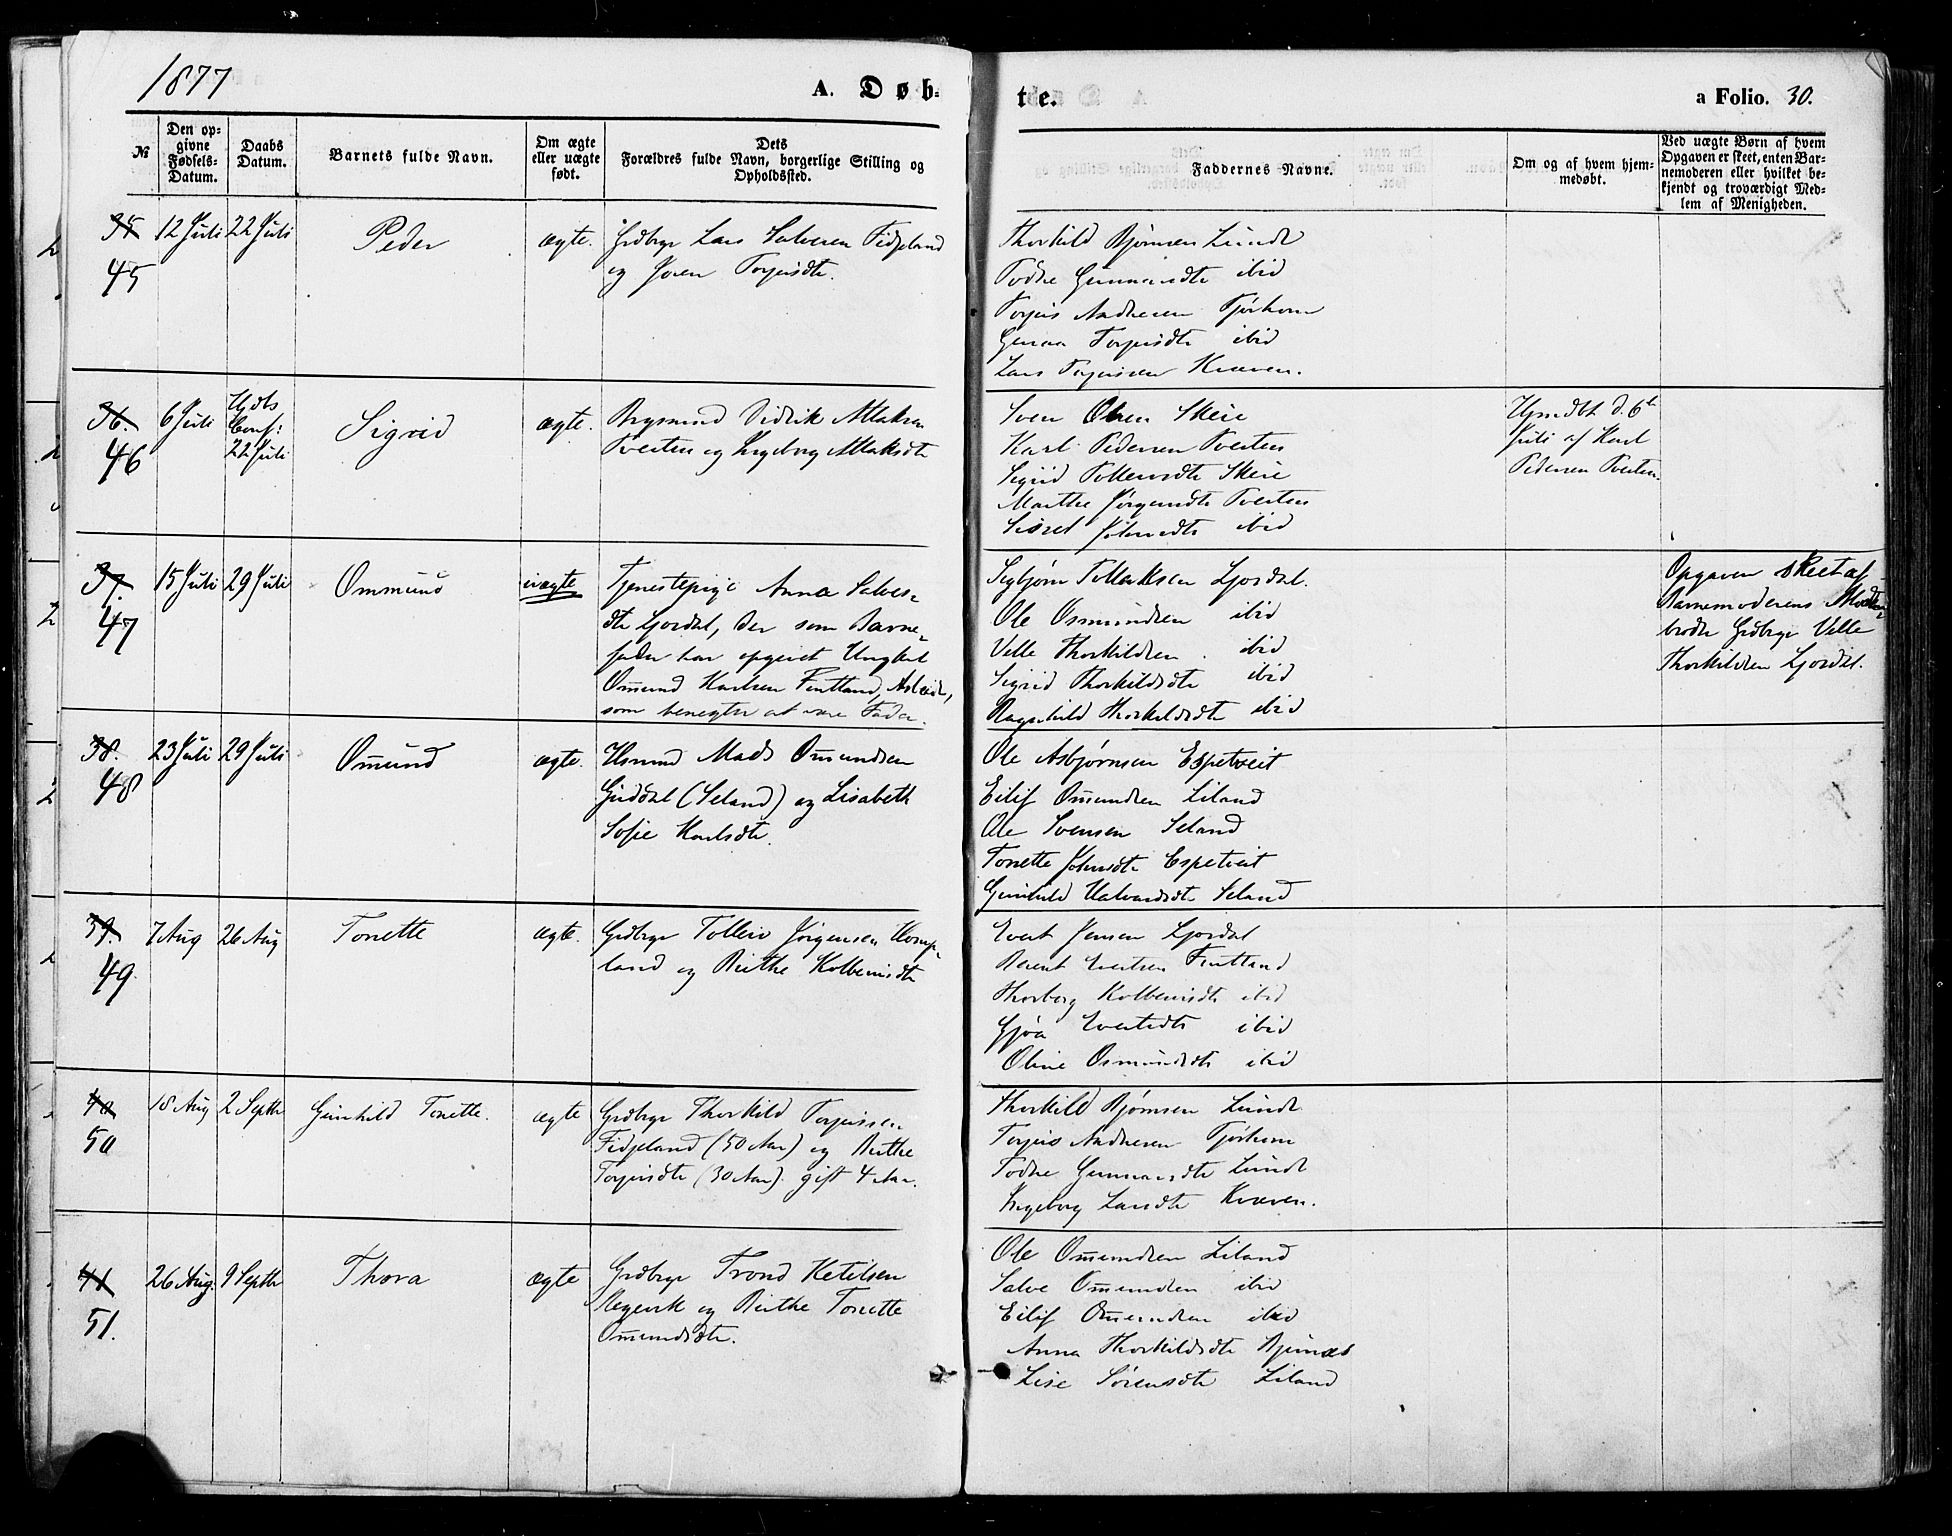 1877
A. Døb-
te.
a Folio. 30.
№
Den op-
givne
Fødsels-
Datum.
Daabs
Datum.
Barnets fulde Navn.
Om ægte
eller uægte
født.
Dets
Forældres fulde Navn, borgerlige Stilling og
Opholdssted.
Faddernes Navne.
Om og af hvem hjem-
medøbt.
Ved uægte Børn af hvem
Opgaven er skeet, enten Bar-
nemoderen eller hvilket be-
kjendt og troværdigt Med-
lem af Menigheden.
35
45
12 Juli
22 Juli
Peder
ægte.
Grdbrgr Lars Salvesen Fidjeland
og Joren Torjusdtr.
Thorkild Bjørnsen Lunde
Todne Gunnarsdtr ibid
Torjus Andresen Tjørhom
Torjusdtr ibid
Lars Torjussen Kvæven.
36.
46
6 Juli
Hjdbt
Conf:
22 Juli
Sigrid
ægte.
Brgsmnd Didrik Atlaksen
Tveiten og Ingeborg Atlaksdtr
Sven Olsen Skeie
Karl Pedersen Tveiten
Sigrid Tolleivsdtr Skeie
Marthe Jørgensdtr Tveiten
Sissel Johnsdtr ibid
Hjmdbt d. 6te
Juli af Karl
Pedersen Tveiten.
37.
47
15 Juli
29 Juli
Ommund
uægte
Tjenestepige Anna Salves-
dtr Ljosdal, der som Barne-
fader har opgivet Ungkarl
Omund Karlsen Fintland,
som benegter at være Fader.
Sigbjørn Tollaksen Ljosdal.
Ole Osmundsen ibid
Velle Thorkildsen ibid
Sigrid Thorkildsdtr ibid
Ragnhild Thorkildsdtr ibid
Opgaven skeet af
Barnemoderens Moder-
broder Grdbrgr Velle
Thorkildsen Ljosdal.
38.
48
23 Juli
29 Juli
Omund
ægte.
Husmnd Mads Omundsen
Guddal (Seland) og Lisabeth
Sofie Karlsdtr.
Ole Asbjørnsen Espetveit
Eilif Omundsen Liland
Ole Svensen Seland
Tonette Johnsdtr Espetveit
Gunhild Halvardsdtr Seland
39.
49.
7 Aug
26 Aug
Tonette
ægte.
Grdbrgr Tolleiv Jørgensen Homp-
land og Birthe Kolbensdtr
Evert Jensen Ljosdal
Berent Evertsen Fintland
Thorborg Kolbensdtr ibid
Gjøa Evertsdtr ibid
Oline Osmundsdtr ibid
40
50
18 Aug
2 Septbr
Gunhild Tonette.
ægte
Grdbrgr Thorkild Torjussen
Fidjeland (50 Aar) og Birthe
Torjusdtr (30 Aar). gift 4 Aar.
Thorkild Bjørnsen Lunde
Torjus Andresen Tjørhom
Todne Gunnarsdtr Lunde
Ingeborg Larsdtr Kvæven.
41
51.
26 Aug.
9 Septbr
Thora
ægte
Grdbrgr Trond Ketilsen
Regevik og Birthe Tonette
Omundsdtr.
Ole Omundsen Liland
Salve Omundsen ibid
Eilif Omundsen ibid
Anna Thorkildsdtr Bjunes
Lise Sørensdtr Liland